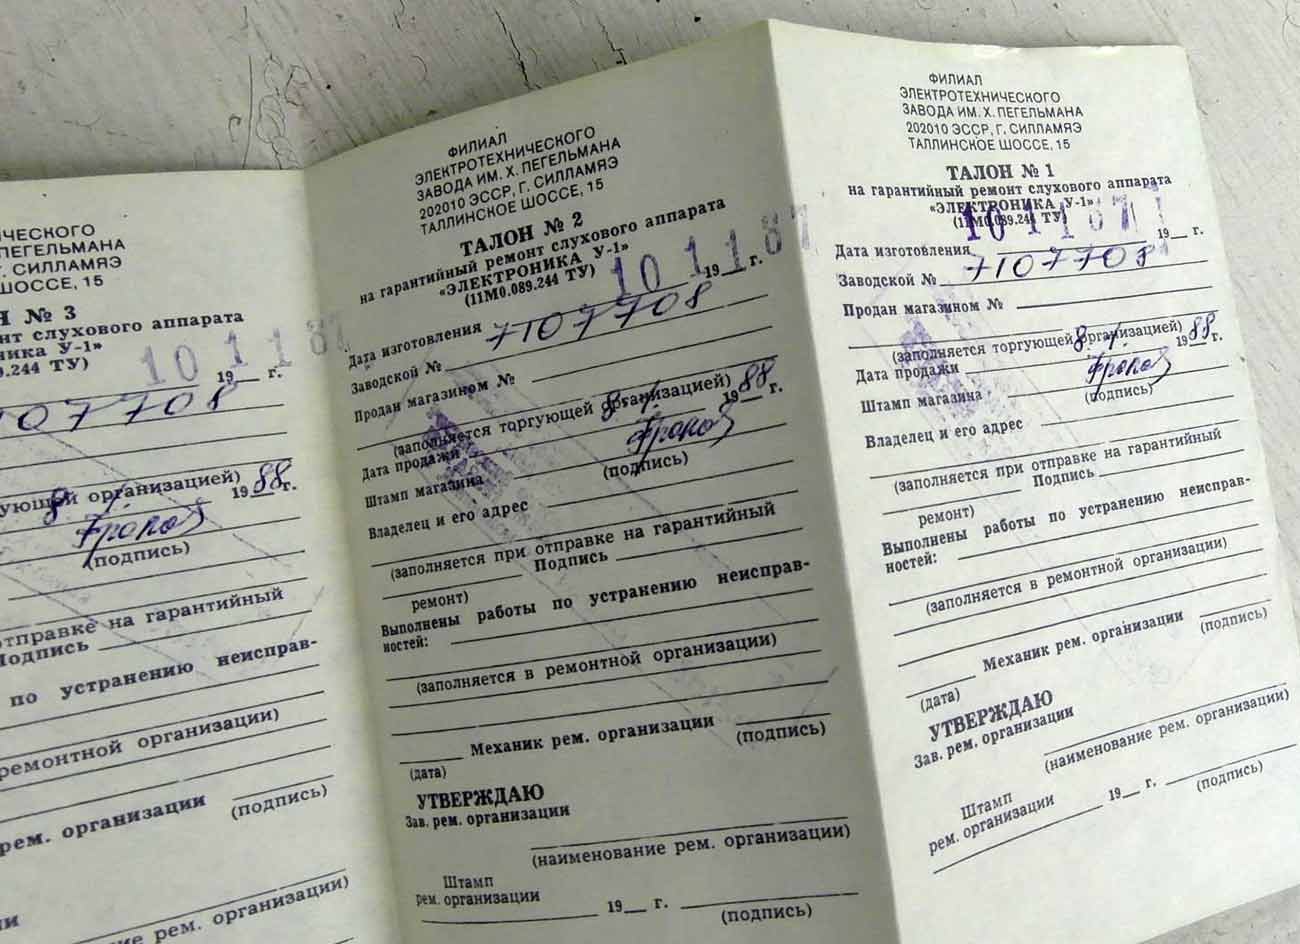 ЧЕСКОГО
ПЕГЕЛЬМАНА
Г. СИЛЛАМЯЭ
ШОССЕ, 15
Н № 3
нт слухового аппарата
ника У-1»
9.244 ТУ)
10 1 1 8
19__ г.
107708
ующей организацией)
8 1. 1988 г.
(подпись)
отправке на гарантийный
Подпись
по устранению неисправ-
ремонтной организации)
рем. организации
(подпись)
ии
ие рем. организации)
ФИЛИАЛ
ЭЛЕКТРОТЕХНИЧЕСКОГО
ЗАВОДА ИМ. Х. ПЕГЕЛЬМАНА
202010 ЭССР, Г. СИЛЛАМЯЭ
ТАЛЛИНСКОЕ ШОССЕ, 15
ТАЛОН № 2
на гарантийный ремонт слухового аппарата
«ЭЛЕКТРОНИКА У-1»
(11М0.089.244 ТУ)
Дата изготовления 10 1 1 87 19__ г.
Заводской № 7107708
Продан магазином №
(заполняется торгующей организацией)
Дата продажи 8 1. 1988 г.
Штамп магазина
(подпись)
Владелец и его адрес
(заполняется при отправке на гарантийный
Подпись
ремонт)
Выполнены работы по устранению неисправ-
ностей:
(заполняется в ремонтной организации)
Механик рем. организации
(дата)
(подпись)
УТВЕРЖДАЮ
Зав. рем. организации
(наименование рем. организации)
Штамп
рем. организации
19__ г.
(подпись)
ФИЛИАЛ
ЭЛЕКТРОТЕХНИЧЕСКОГО
ЗАВОДА ИМ. Х. ПЕГЕЛЬМАНА
202010 ЭССР, Г. СИЛЛАМЯЭ
ТАЛЛИНСКОЕ ШОССЕ, 15
ТАЛОН № 1
на гарантийный ремонт слухового аппарата
«ЭЛЕКТРОНИКА У-1»
(11М0.089.244 ТУ)
10 1 1 87
Дата изготовления 19__ г.
Заводской № 7107708
Продан магазином №
(заполняется торгующей организацией)
Дата продажи 8 1. 1988 г.
Штамп магазина
(подпись)
Владелец и его адрес
(заполняется при отправке на гарантийный
Подпись
ремонт)
Выполнены работы по устранению неисправ-
ностей:
(заполняется в ремонтной организации)
Механик рем. организации
(дата)
(подпись)
УТВЕРЖДАЮ
Зав. рем. организации
(наименование рем. организации)
Штамп
рем. организации
19__ г.
(подпись)